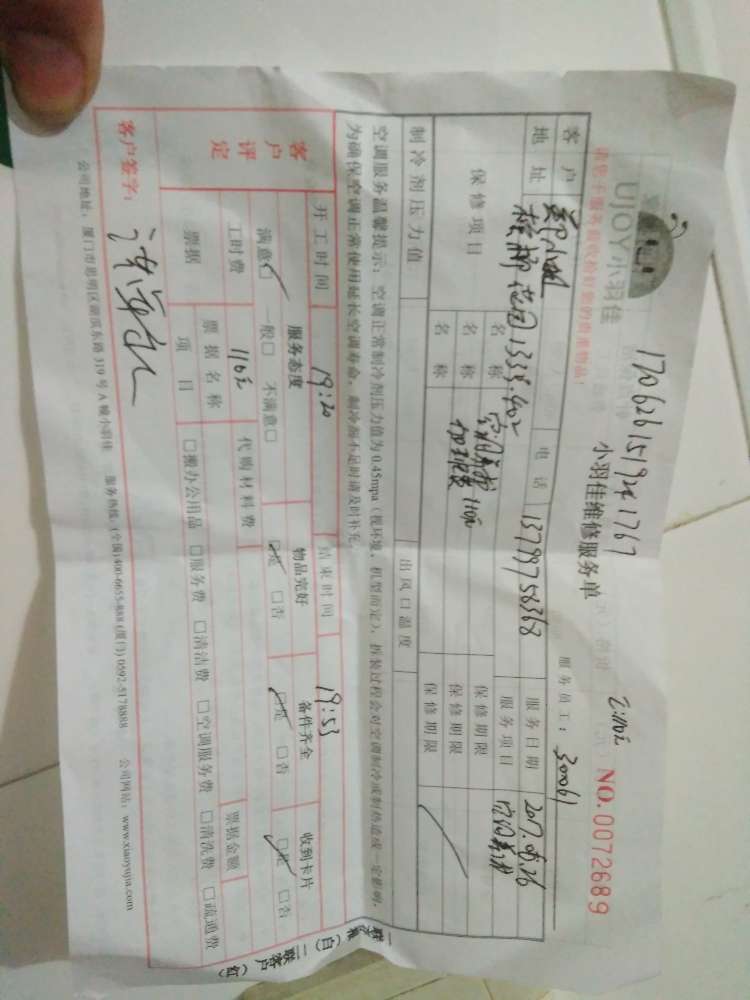 UJOY小羽佳
17062615921767
小羽佳维修服务单
NO.0072689
服务员工：30061
客户
电话 13799758368
服务日期 2017.06.26
地址
1338.402
服务项目
保修项目
名称
110元
保修期限
名称
保修期限
名称
保修期限
制冷剂压力值
出风口温度
空调服务温馨提示：空调正常制冷剂压力值为0.45mpa（视环境，机型而定），拆装过程会对空调制冷或制热造成一定影响，
为确保空调正常使用延长空调寿命，制冷剂不足时请及时补充。
开工时间 19:20
结束时间 19:53
客户评定
服务态度
物品完好
备件齐全
收到卡片
满意□ 一般□ 不满意□
□是 □否
□是 □否
□是 □否
工时费 110元
代购材料费
票据
票据名称
票据金额
项目
□搬办公用品 □服务费 □清洁费 □空调服务费 □清洗费 □疏通费
客户签字：
公司地址：厦门市思明区湖滨东路319号A幢小羽佳 服务热线：(全国)400-6655-888 (厦门) 0592-5178888 公司网站：www.xiaoyujia.com
二联客户（红）